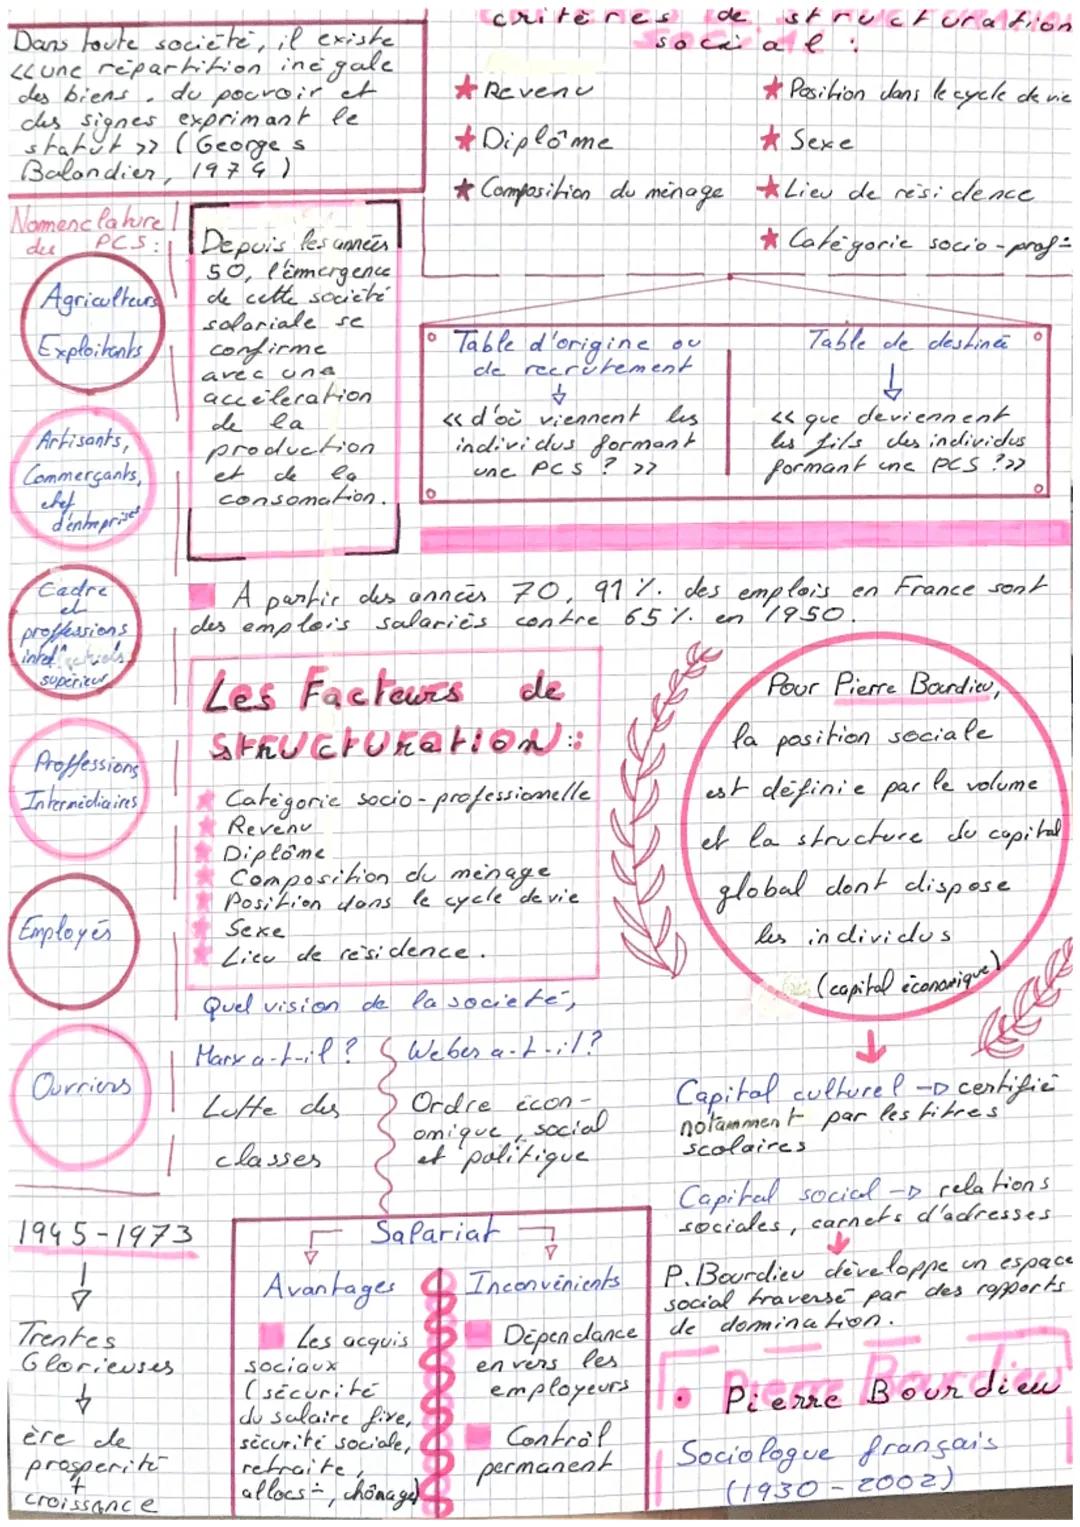 critères de structuration
sociale :
Dans toute société, il existe
<< une répartition inégale
des biens, du pouvoir et
des signes exprimant le
statut >> (Georges
Balandier, 1974)
★ Revenu
★ Diplôme
★ Composition du ménage
★ Position dans le cycle de vie
★ Sexe
★ Lieu de résidence
★ Catégorie socio-prof=
Nomenclature
des PCS :
Agriculteurs
Exploitants
Artisants,
Commerçants,
chef
d'entreprises
Cadre
et
proffessions
supérieur
Proffessions
Intermédiaires
Employés
Ourriers
Depuis les années
50, l'émmergence
de cette société
salariale se
confirme
avec une
accéleration
de la
production
et de la
consomation.
Table d'origine ou
de recrutement
<< d'où viennent les
individus formant
une PCS ? >>
Table de destinée
<< que deviennent
les fils des individus
formant une PCS ? >>
A partir des années 70, 91 % des emplois en France sont
des emplois salariés contre 65 % en 1950.
Les Facteurs de
structuration :
Catégorie socio-professionnelle
Revenu
Diplôme
Composition du ménage
Position dans le cycle de vie
Sexe
Lieu de résidence.
Pour Pierre Bourdieu,
la position sociale
est définie par le volume
et la structure du capital
global dont dispose
les individus
(capital économique)
Quel vision de la societé,
Marx a-t-il ?
Lutte des
classes
Weber a-t-il ?
Ordre écon-
omique, social
et politique
Capital culturel → certifié
notamment par les titres
scolaires
Capital social → relations
sociales, carnets d'adresses
P. Bourdieu développe un espace
social traversé par des rapports
de domination.
• Pierre Bourdieu
Sociologue français
(1930 - 2002)
1945-1973
Trentes
Glorieuses
ère de
prosperité
+
croissance
Salariat
Avantages
Les acquis
sociaux
(sécurité
du salaire fixe,
sécurité sociale,
retraite,
allocs=, chômage)
Inconvénients
Dépendance
envers les
employeurs
Contrôl
permanent